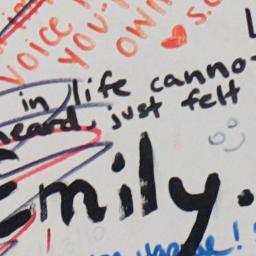 voice
you
own
in life canno
heard, just felt
Emily.